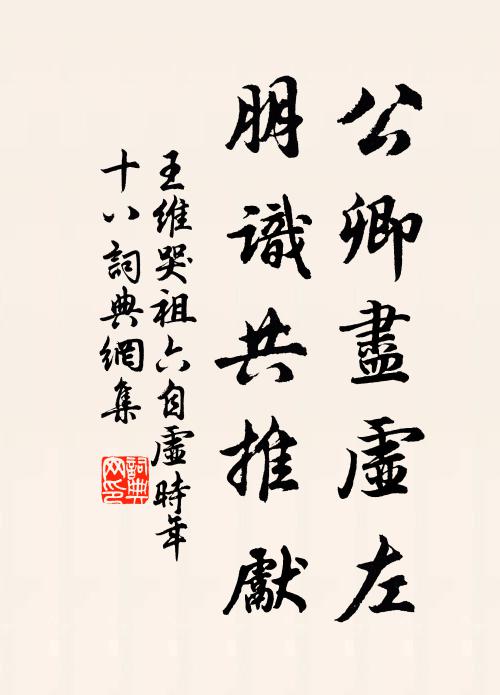 公卿盡虛左
朋識共推獻
王維哭祖六自虛時年
十八詞典網集
詞典
网印